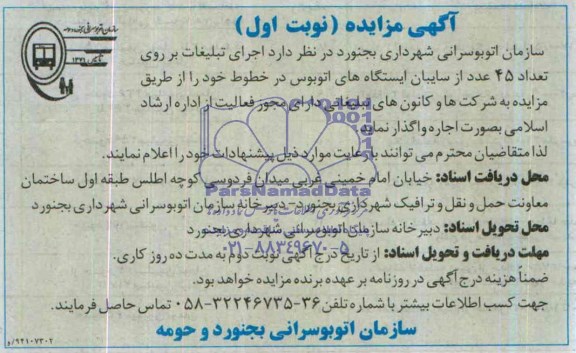 آگهی مزایده (نوبت اول)
سازمان اتوبوسرانی شهرداری بجنورد در نظر دارد اجرای تبلیغات بر روی
تعداد ۴۵ عدد از سایبان ایستگاه های اتوبوس در خطوط خود را از طریق
مزایده به شرکت ها و کانون های تبلیغاتی دارای مجوز فعالیت از اداره ارشاد
اسلامی بصورت اجاره واگذار نماید.
لذا متقاضیان محترم می توانند با رعایت موارد ذیل پیشنهادات خود را اعلام نمایند.
محل دریافت اسناد: خیابان امام خمینی غربی میدان فردوسی کوچه اطلس طبقه اول ساختمان
معاونت حمل و نقل و ترافیک شهرداری بجنورد- دبیرخانه سازمان اتوبوسرانی شهرداری بجنورد
محل تحویل اسناد: دبیرخانه سازمان اتوبوسرانی شهرداری بجنورد
مهلت دریافت و تحویل اسناد: از تاریخ درج آگهی نوبت دوم به مدت ده روز کاری.
ضمناً هزینه درج آگهی در روزنامه بر عهده برنده مزایده خواهد بود.
جهت کسب اطلاعات بیشتر با شماره تلفن ۳۶-۳۲۲۴۶۷۳۵-۰۵۸ تماس حاصل فرمایند.
سازمان اتوبوسرانی بجنورد و حومه
۹۴۱۰۷۳۰۲/و
ParsNamadData
۰۲۱-۸۸۳۴۹۶۷۰-۵